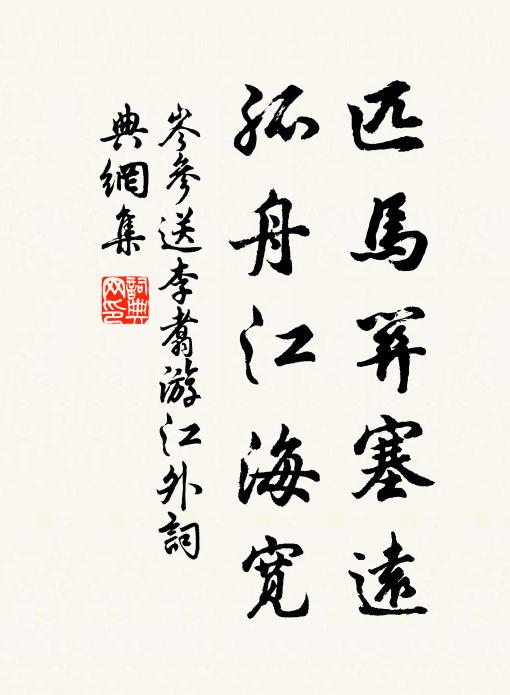 匹馬關塞遠
孤舟江海寬
岑參送李翥游江外詞
典網集
詞典
网印